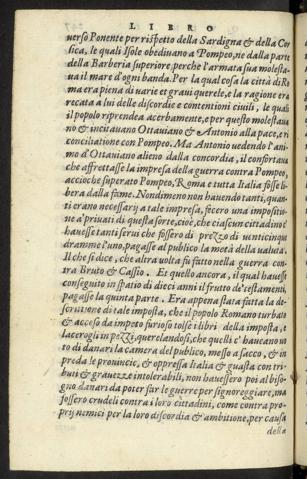 LIBRO
uerso Ponente per rispetto della Sardigna & della Cor
sica, le quali Isole obediuano a Pompeo, ne dalla parte
della Barberia superiore perche l'armata sua molesta-
ua il mare d'ogni banda. Per la qual cosa la città di Ro
ma era piena di uarie et graui querele, e la ragione era
recata a lui delle discordie e contentioni ciuili, le quali
il popolo riprendea acerbamente, e per questo molestaua
no & incitauano Ottauiano & Antonio alla pace, e ri
conciliatione con Pompeo. Ma Antonio uedendo l'ani-
mo d'Ottauiano alieno dalla concordia, il confortaua
che affrettasse la impresa della guerra contra Pompeo,
accioche superato Pompeo, Roma e tutta Italia fosse li-
bera dalla fame. Nondimeno non hauendo tanti, quan-
ti erano necessarij a tale impresa, fecero una impositio-
ne a' priuati di questa sorte, cioè, che ciascun cittadino c'
hauesse tanti serui che fossero di prezzo di uinticinque
dramme l'uno, pagasse al publico la metà della ualuta.
Il che si dice, che altra uolta fu fatto nella guerra con-
tra Bruto & Cassio. Et quello ancora, il qual hauesse
conseguito in spatio di dieci anni il frutto de' testamenti,
pagasse la quinta parte. Era appena stata fatta la de-
scrittione di tale imposta, che il popolo Romano turbato
& acceso da impeto furioso tolse i libri della imposta, et
lacerogli in pezzi, querelandosi, che quelli c' haueano uo
to di danari la camera del publico, messo a sacco, & in
preda le prouincie, & oppressa Italia & guasta con tri-
buti & grauezze intolerabili, non hauessero poi al biso-
gno danari da poter far le guerre per signoreggiare, ma
fossero crudeli contra i loro cittadini, come contra pro-
prij nemici per la loro discordia & ambitione, per causa
della